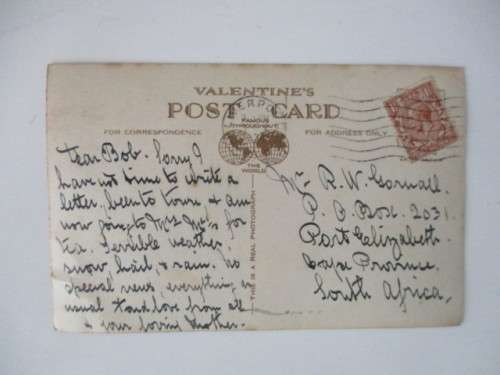 VALENTINE'S
POST CARD
FAMOUS
THROUGHOUT
THE
WORLD
FOR CORRESPONDENCE
FOR ADDRESS ONLY
Dear Bob. Sorry I
have not time to write a
letter, been to town & am
now going to for
tea. Terrible weather,
snow, hail, & rain. No
special news, everything as
usual. Fond love from all
& your loving Mother.
THIS IS A REAL PHOTOGRAPH
Mr. R. W. Cornall.
P. O Box. 2031.
Port Elizabeth.
Cape Province.
South Africa,